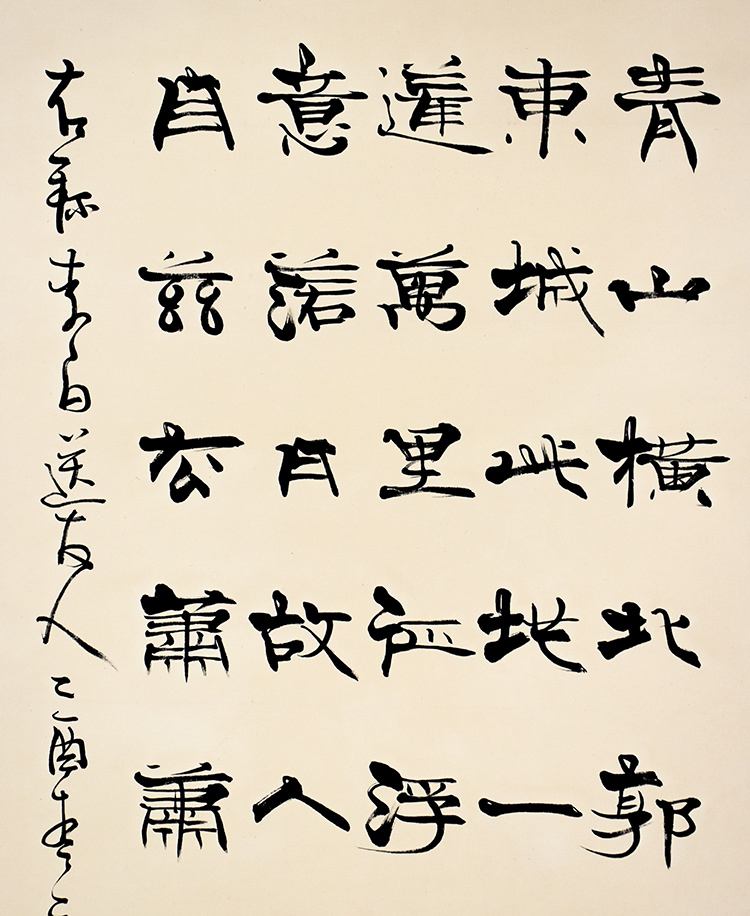 青山橫北郭
東城此地一
蓬萬里征浮
意落日故人
自茲去蕭蕭
右錄李白送友人乙酉春